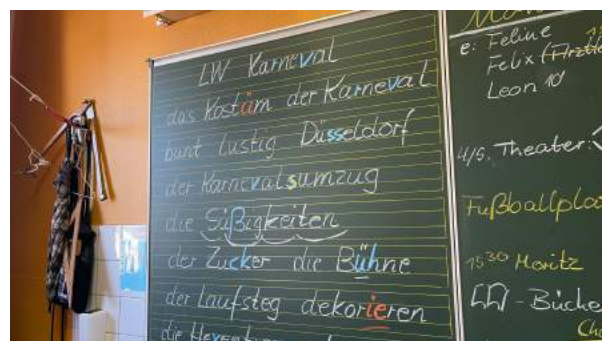 LW Karneval
das Kostüm der Karneval
bunt lustig Düsseldorf
der Karnevalsumzug
die Süßigkeiten
der Zucker die Bühne
der Laufsteg dekorieren
die
e: Feline
Felix
Leon 10
4/5. Theater:
Fußballpla
15³⁰ Moritz
- Büche